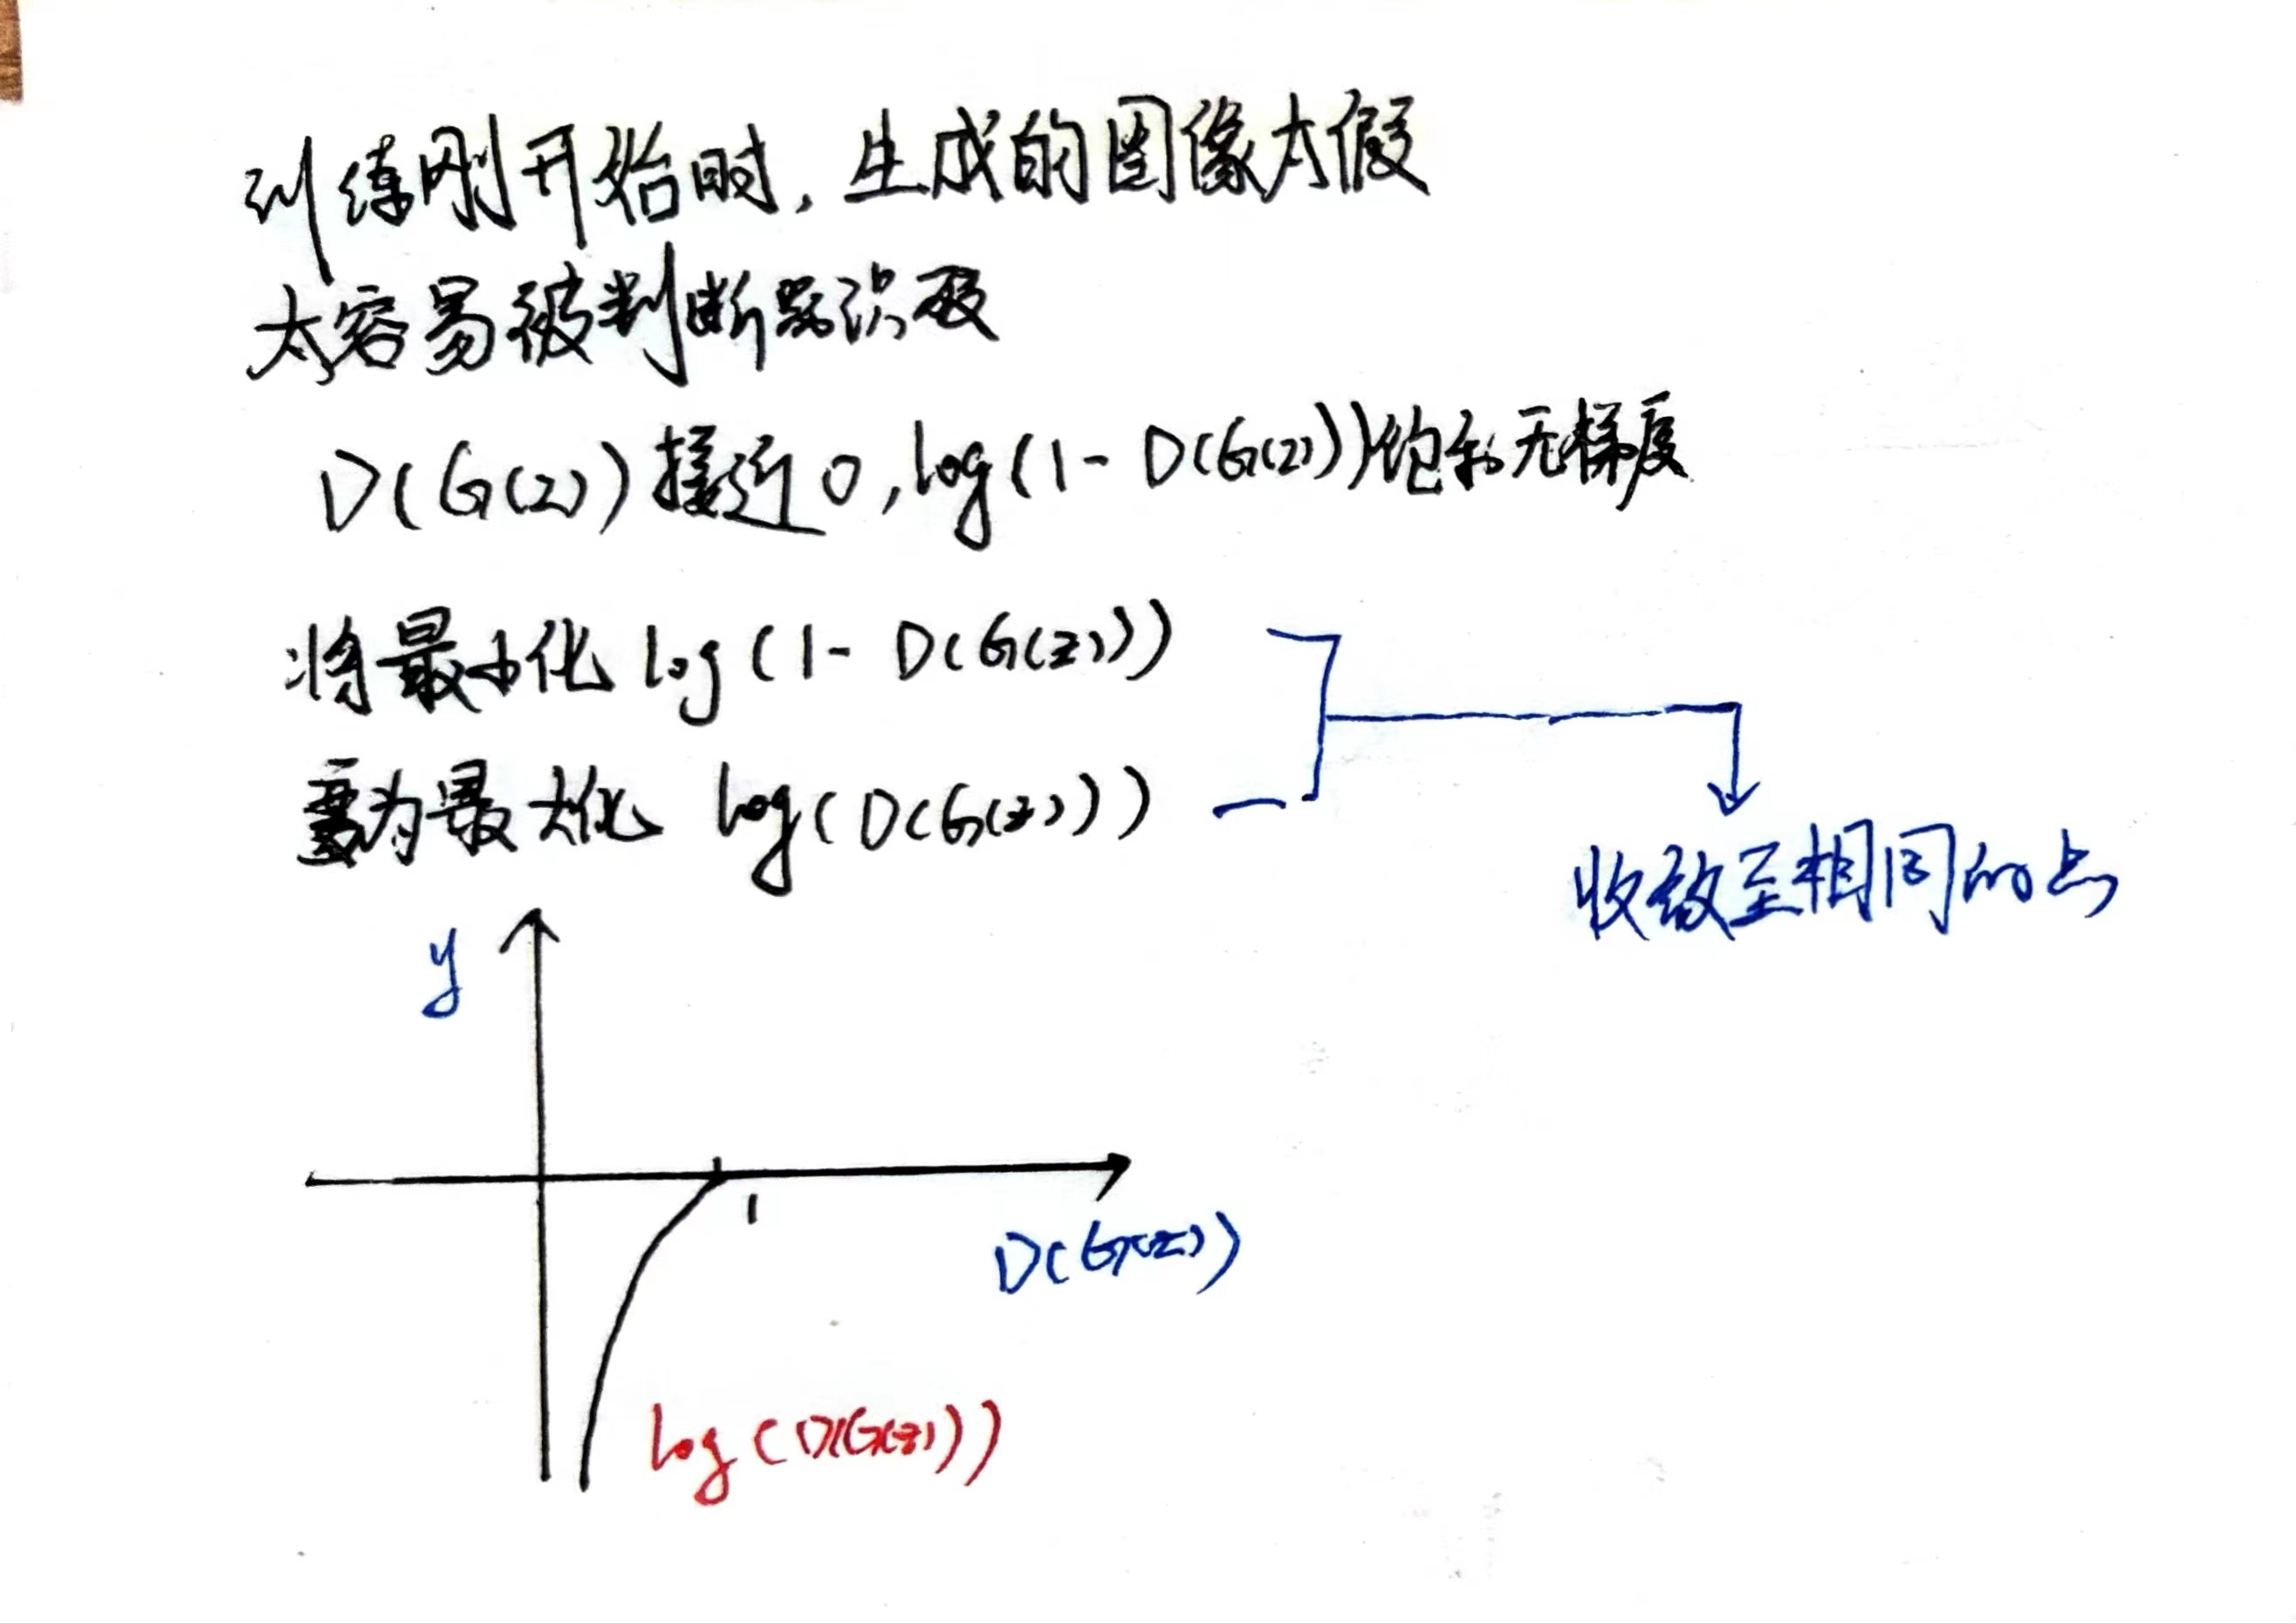 训练刚开始时,生成的图像太假
太容易被判断器识破
D(G(z))接近0,log(1-D(G(z)))饱和无梯度
将最小化 log(1- D(G(z)))
变为最大化 log(D(G(z)))
收敛至相同的点
y
1
D(G(z))
log(D(G(z)))